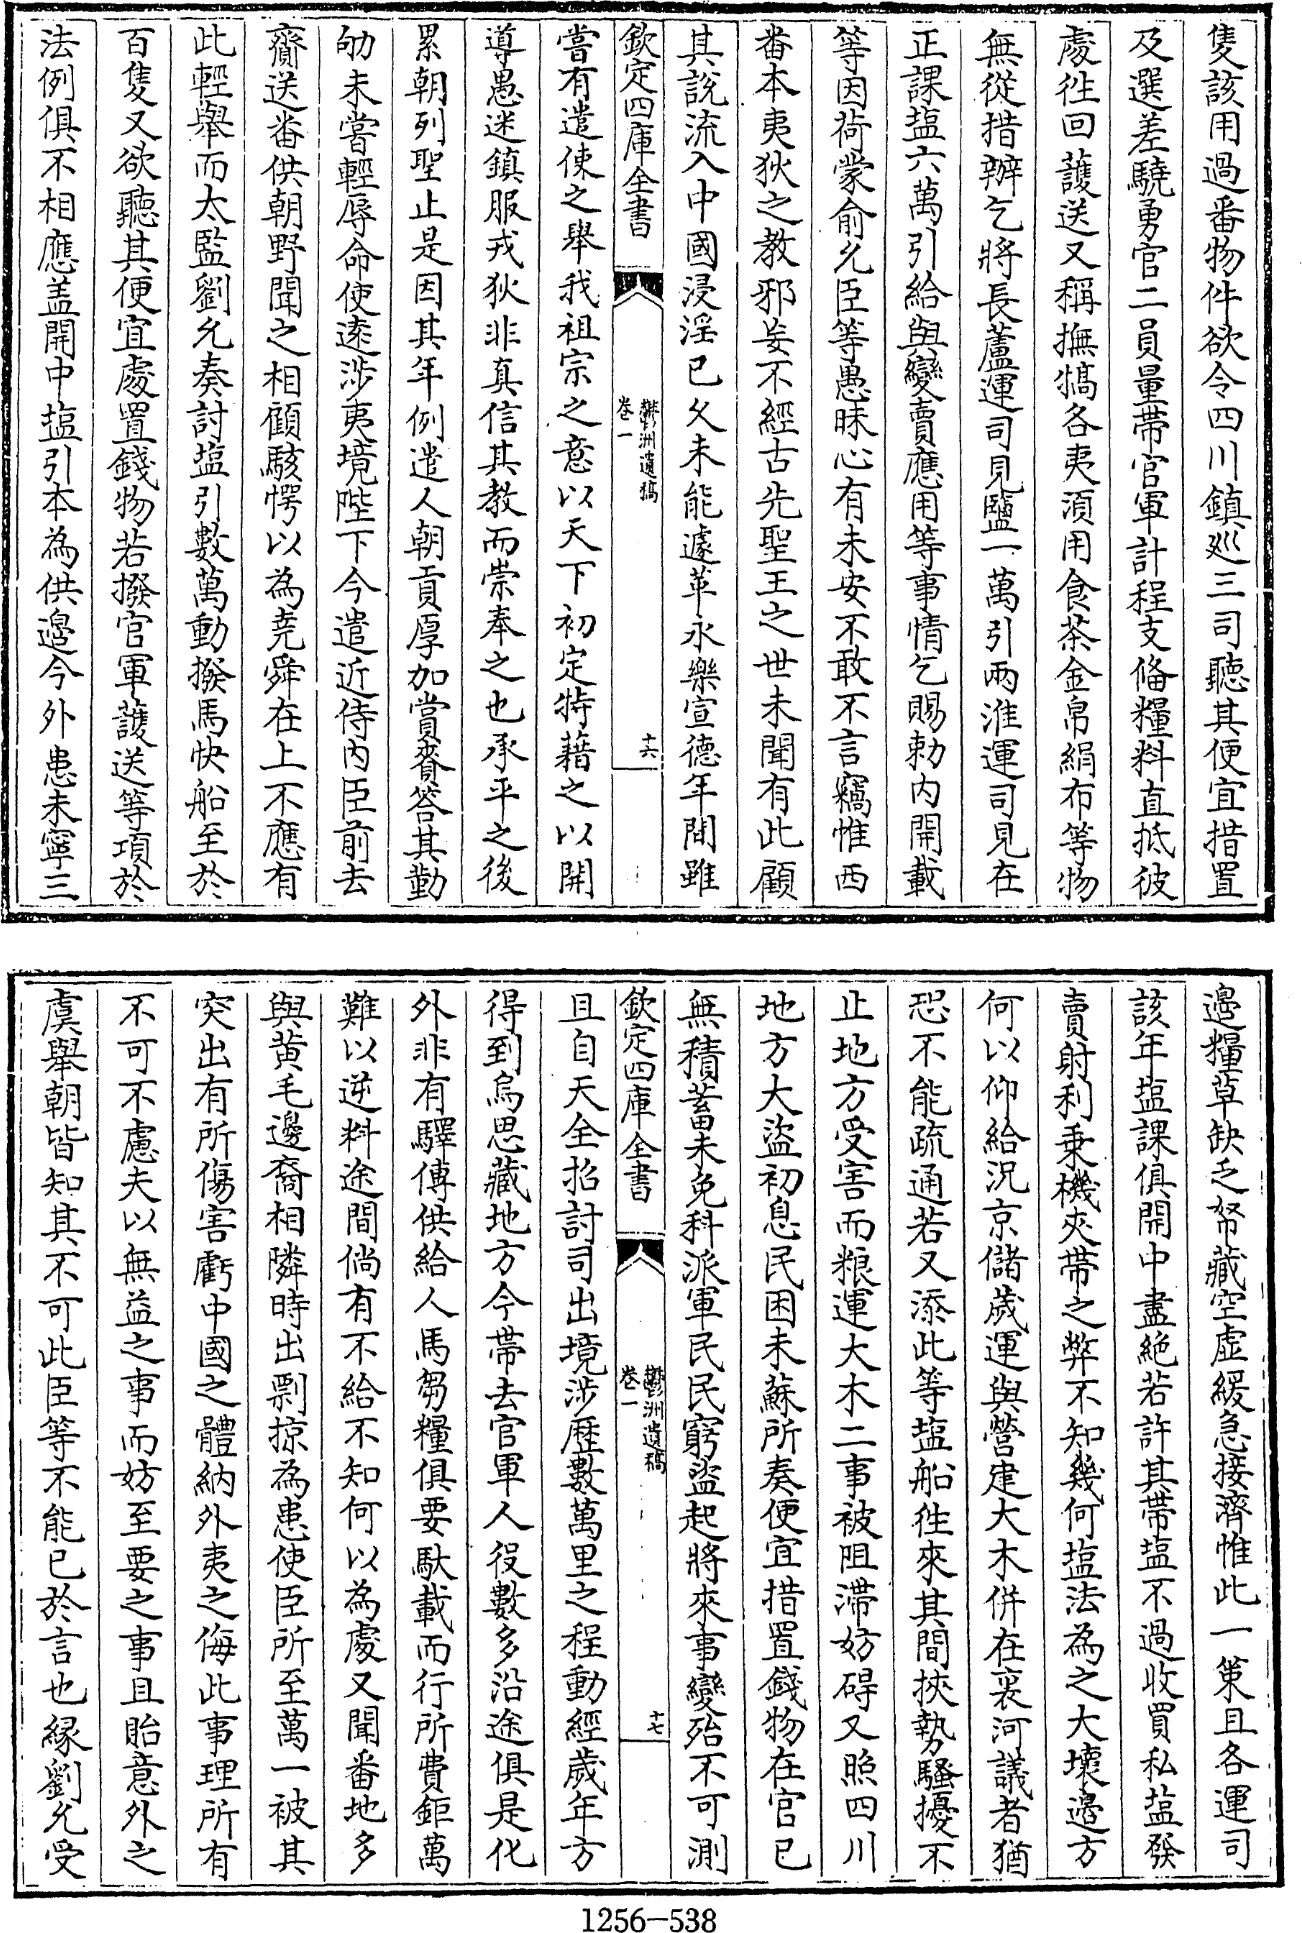 隻該用過番物件欲令四川鎮廵三司聽其便宜措置
及選差驍勇官二員量帶官軍計程支俻糧料直抵彼
處徃回䕶送又稱撫犒各夷湏用食茶金帛絹布等物
無從措辦乞將長蘆運司見鹽一萬引兩淮運司見在
正課塩六萬引給與變賣應用等事情乞賜勅内開載
等因荷蒙俞允臣等愚昧心有未安不敢不言竊惟西
番本夷狄之教邪妄不經古先聖王之世未聞有此顧
其說流入中國浸淫已久未能遽革永樂宣德年間雖
欽定四庫全書
鬱洲遺稿
卷一
十六
嘗有遣使之舉我祖宗之意以天下初定特藉之以開
導愚迷鎮服戎狄非真信其教而崇奉之也承平之後
累朝列聖止是因其年例遣人朝貢厚加賞賚答其勤
劬未嘗輕辱命使逺涉夷境陛下今遣近侍内臣前去
齎送畨供朝野聞之相顧駭愕以為堯舜在上不應有
此輕舉而太監劉允奏討塩引數萬動撥馬快船至於
百隻又欲聽其便宜處置錢物若撥官軍䕶送等項於
法例俱不相應盖開中塩引本為供邉今外患未寧三
邉糧草缺乏帑藏空虚緩急接濟惟此一策且各運司
該年塩課俱開中盡絶若許其帶塩不過收買私塩發
賣射利乗機夾帶之弊不知幾何塩法為之大壞邉方
何以仰給況京儲歲運與營建大木併在裏河議者猶
恐不能疏通若又添此等塩船徃來其間挾勢騷擾不
止地方受害而粮運大木二事被阻滯妨碍又照四川
地方大盜初息民困未蘇所奏便宜措置錢物在官已
無積蓄未免科派軍民民窮盜起將來事變殆不可測
欽定四庫全書
鬱洲遺稿
卷一
十七
且自天全招討司出境涉歴數萬里之程動經歲年方
得到烏思藏地方今帶去官軍人役數多沿途俱是化
外非有驛傳供給人馬芻糧俱要馱載而行所費鉅萬
難以逆料途間倘有不給不知何以為處又聞番地多
與黄毛邊裔相隣時出剽掠為患使臣所至萬一被其
突出有所傷害虧中國之體納外夷之侮此事理所有
不可不慮夫以無益之事而妨至要之事且貽意外之
虞舉朝皆知其不可此臣等不能已於言也縁劉允受
1256—538